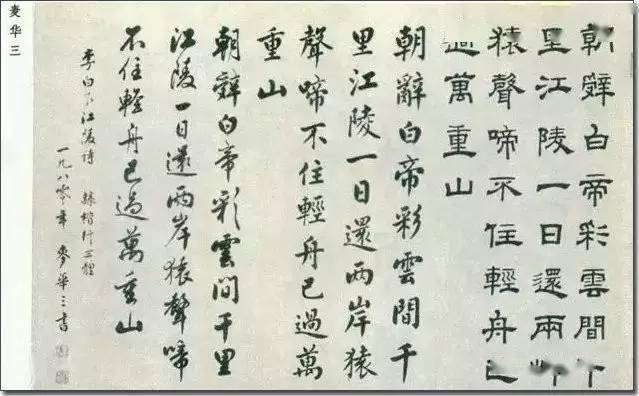 朝辤白帝彩雲間千
里江陵一日還兩岸
猿聲啼不住輕舟已
過萬重山
朝辭白帝彩雲間千
里江陵一日還兩岸猿
聲啼不住輕舟已過萬
重山
朝辤白帝彩雲間千里
江陵一日還兩岸猿聲啼
不住輕舟已過萬重山
李白下江陵詩 隸楷行三體
一九八零年 麥華三書
麦华三